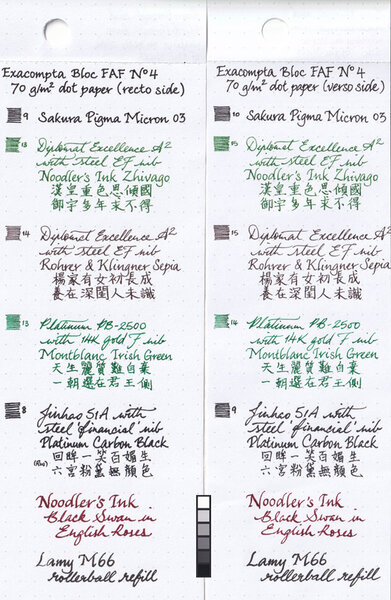 Exacompta Bloc FAF Nº4
70 g/m² dot paper (recto side)
9 Sakura Pigma Micron 03
13 Diplomat Excellence A²
with steel EF nib
Noodler's Ink Zhivago
漢皇重色思傾國
御宇多年求不得
14 Diplomat Excellence A²
with steel EF nib
Rohrer & Klingner Sepia
楊家有女初長成
養在深閨人未識
13 Platinum PB-2500
with 14K gold F nib
Montblanc Irish Green
天生麗質難自棄
一朝選在君王側
8 Jinhao 51A with
steel 'financial' nib
Platinum Carbon Black
回眸一笑百媚生
六宮粉黛無顏色
Noodler's Ink
Black Swan in
English Roses
Lamy M66
rollerball refill
Exacompta Bloc FAF Nº4
70 g/m² dot paper (verso side)
10 Sakura Pigma Micron 03
15 Diplomat Excellence A²
with steel EF nib
Noodler's Ink Zhivago
漢皇重色思傾國
御宇多年求不得
15 Diplomat Excellence A²
with steel EF nib
Rohrer & Klingner Sepia
楊家有女初長成
養在深閨人未識
14 Platinum PB-2500
with 14K gold F nib
Montblanc Irish Green
天生麗質難自棄
一朝選在君王側
9 Jinhao 51A with
steel 'financial' nib
Platinum Carbon Black
回眸一笑百媚生
六宮粉黛無顏色
Noodler's Ink
Black Swan in
English Roses
Lamy M66
rollerball refill